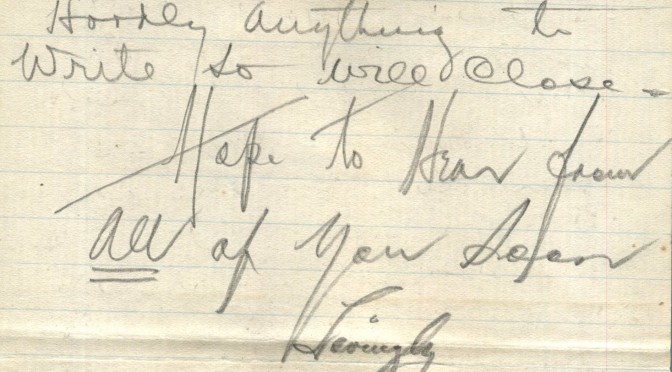 Hardly anything to
Write so will Close -
Hope to Hear from
All of You Soon
Lovingly